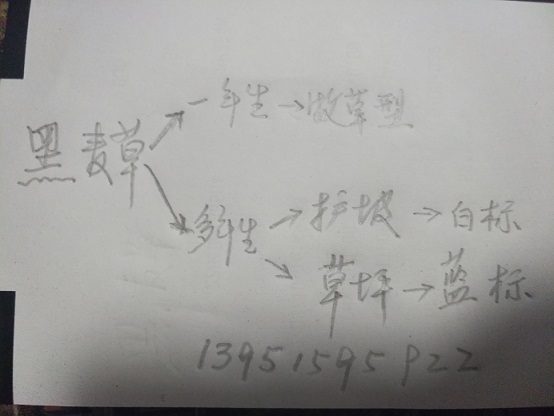 一年生→牧草型
黑麦草
多年生→护坡→白标
草坪→蓝标
13951595P22